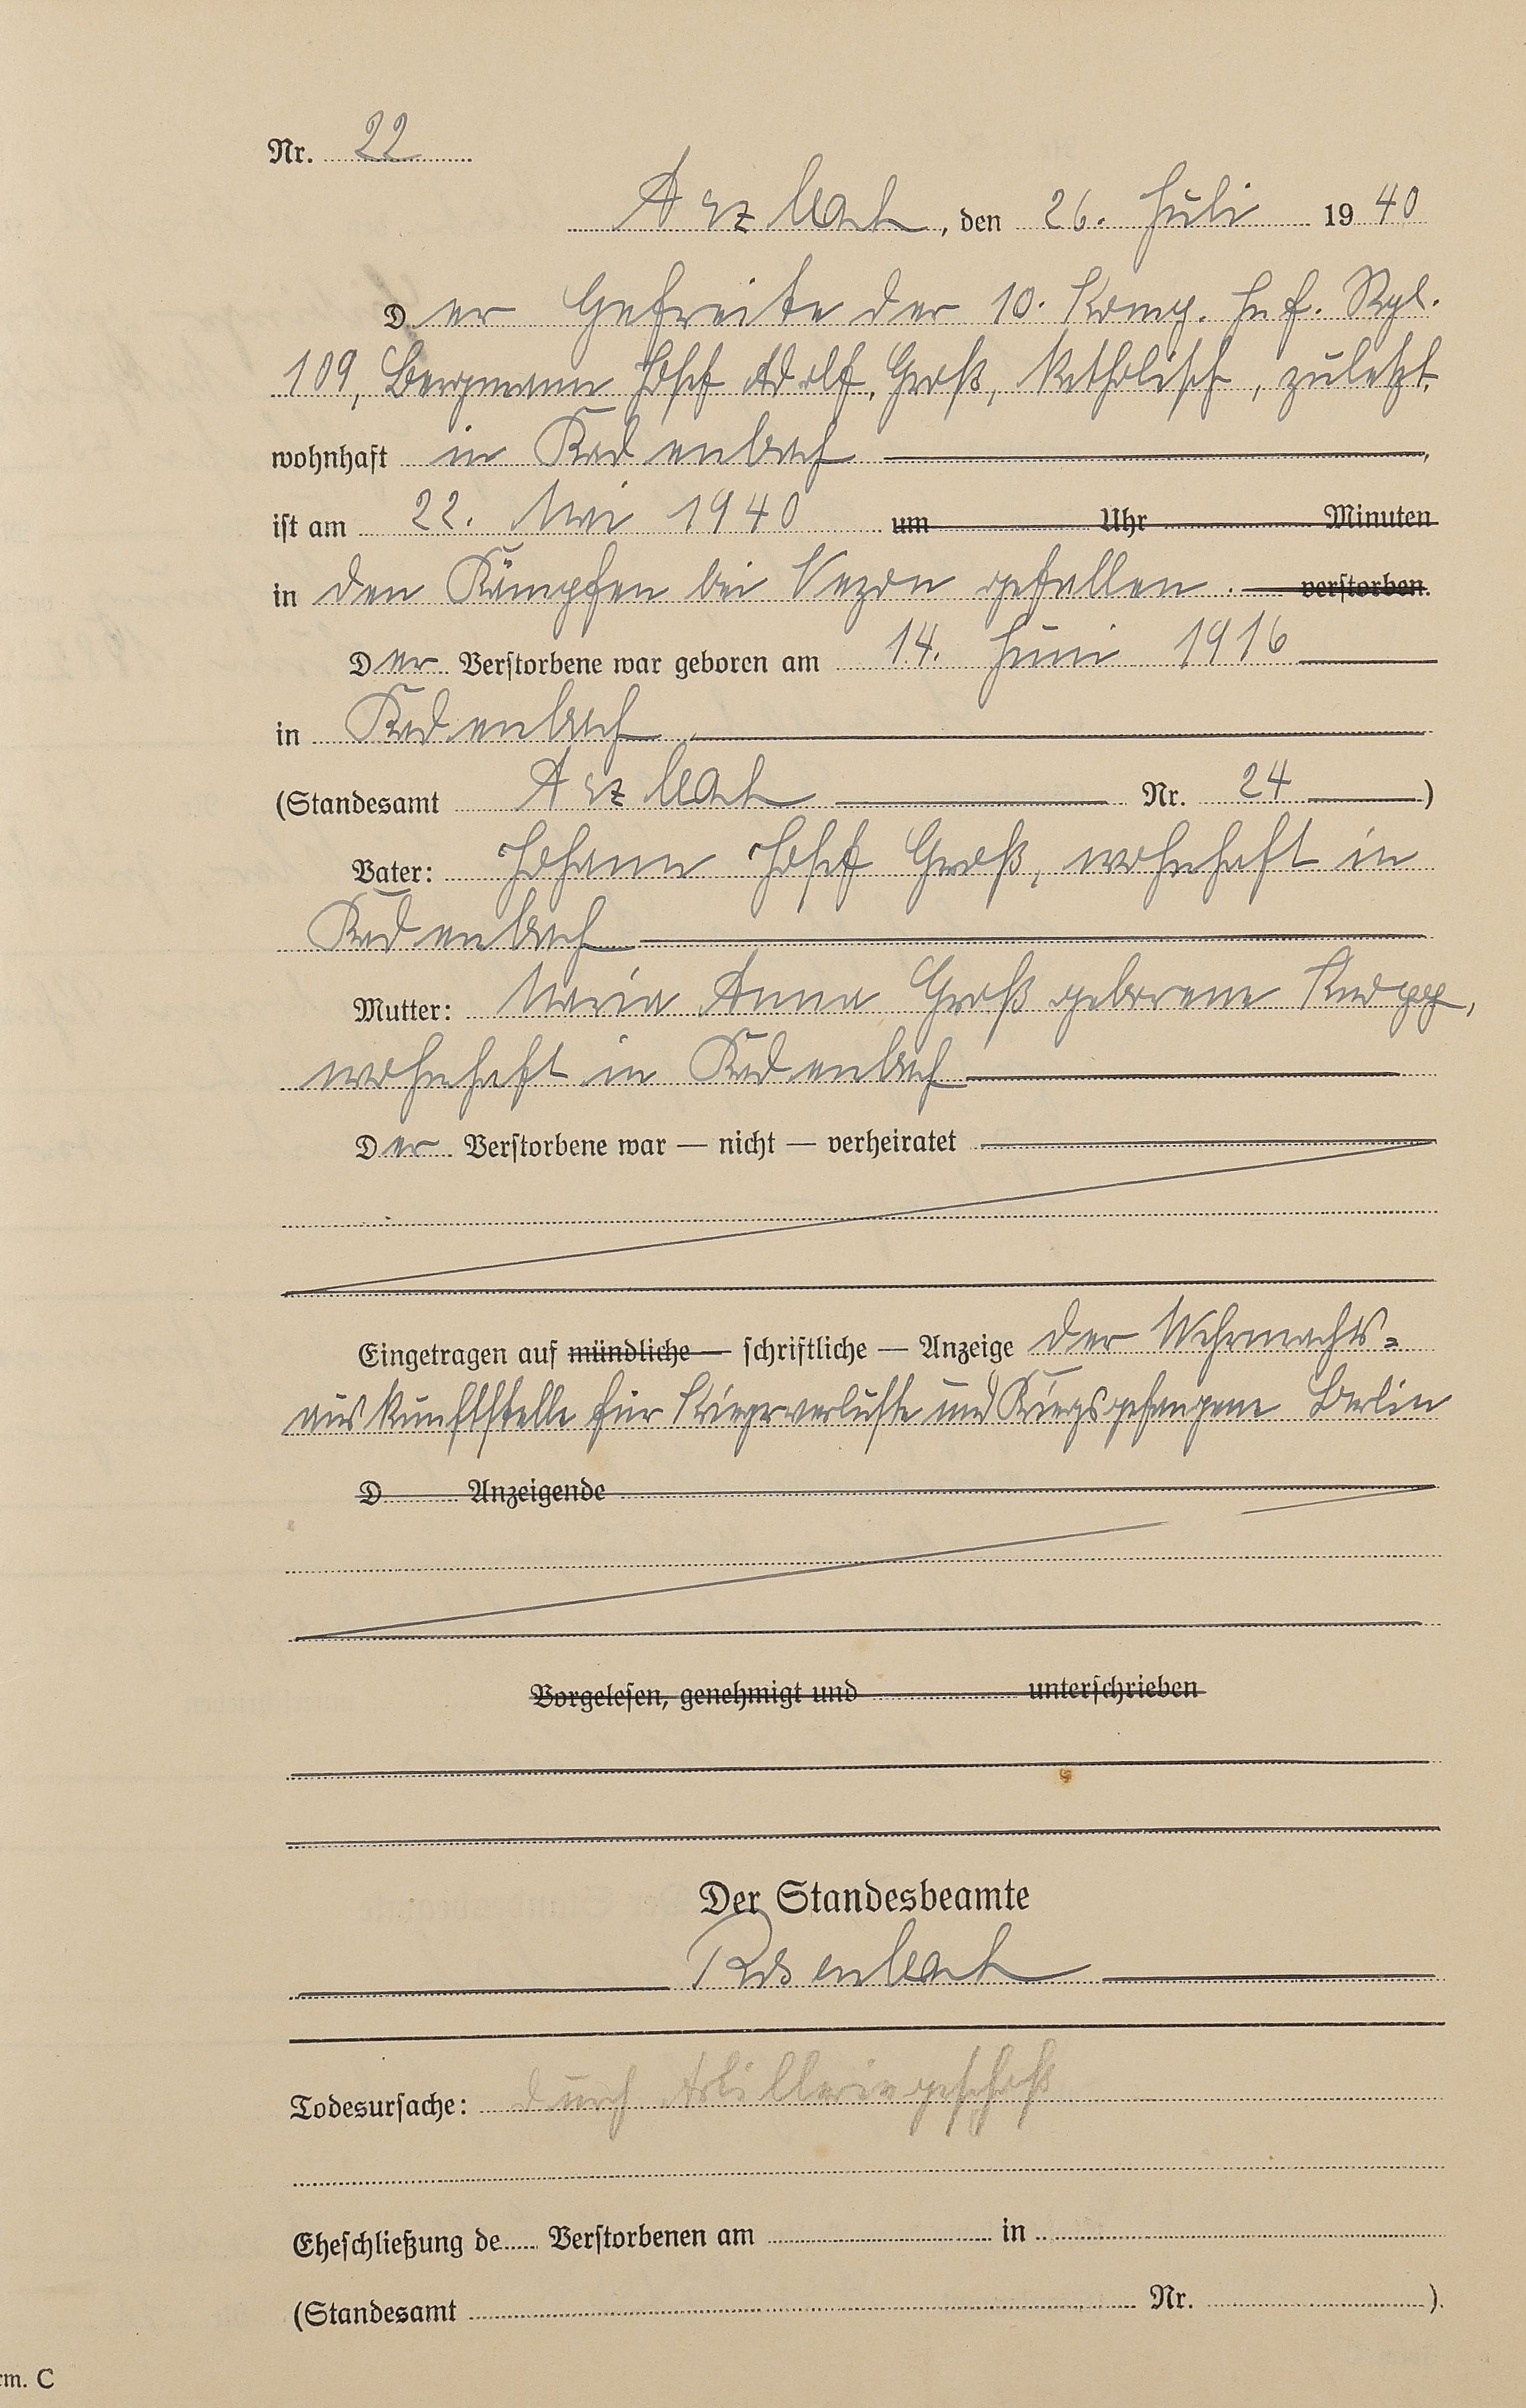 Nr. 22
Arzbach, den 26. Juli 1940
Der Gefreite der 10. Komp. Inf. Rgt.
109, Bergmann Josef Adolf, Groß, katholisch, zuletzt
wohnhaft in Kadenbach,
ist am 22. Mai 1940 um Uhr Minuten
in den Kämpfen bei Vezon gefallen. verstorben.
Der Verstorbene war geboren am 14. Juni 1916
in Kadenbach
(Standesamt Arzbach Nr. 24)
Vater: Johann Josef Groß, wohnhaft in
Kadenbach
Mutter: Maria Anna Groß geborene Knopp,
wohnhaft in Kadenbach
Der Verstorbene war — nicht — verheiratet
Eingetragen auf mündliche — schriftliche — Anzeige der Wehrmachts=
auskunftstelle für Kriegerverluste und Kriegsgefangene Berlin
D Anzeigende
Vorgelesen, genehmigt und unterschrieben
Der Standesbeamte
Rosenbach
Todesursache: durch Artilleriegeschoß
Eheschließung de Verstorbenen am in
(Standesamt Nr. ).
rm. C